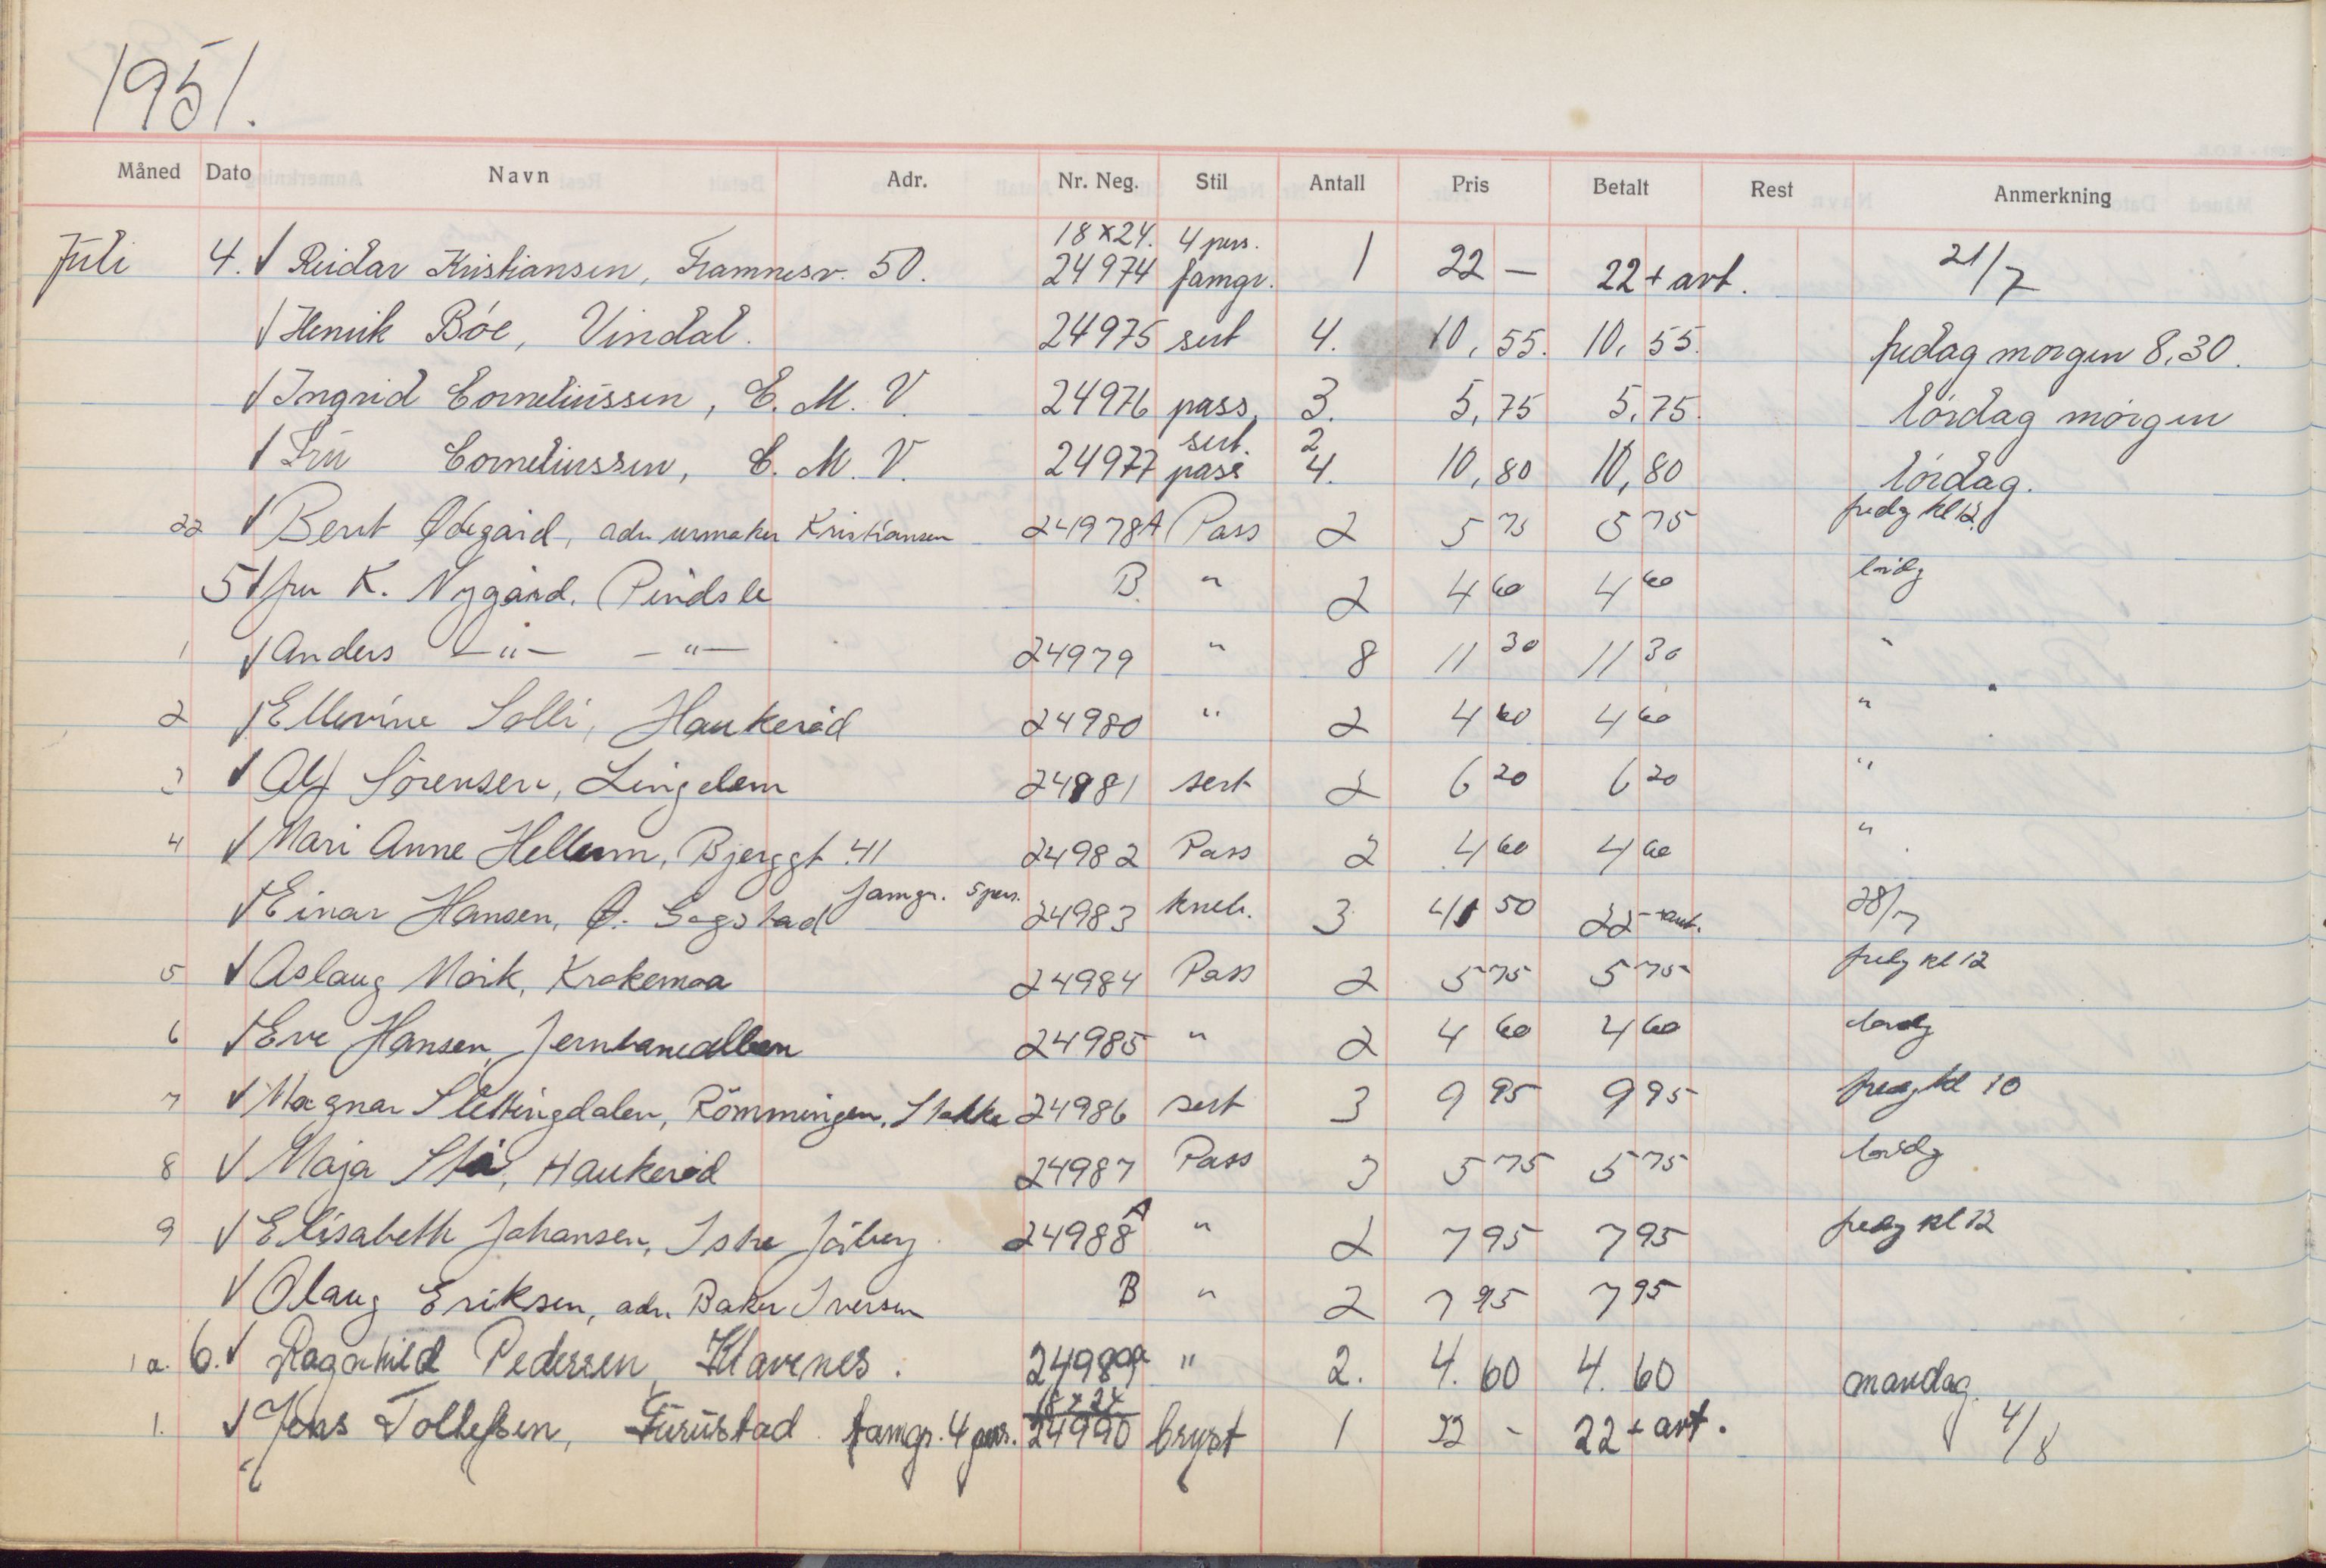 1951.
Måned Dato Navn Adr. Nr. Neg. Stil Antall Pris Betalt Rest Anmerkning
18x24. 4 pers.
Juli 4. √ Reidar Kristiansen, Framnesv. 50. 24974 famgr. 1 22 — 22 + avt. 21/7
√ Henrik Bóe, Vindal. 24975 sert 4. 10, 55. 10, 55. fredag morgen 8,30.
√ Ingrid Corneliussen, E. M. V. 24976 pass, 3. 5, 75 5, 75. lórdag morgen
sert. 2
√ Frú Corneliussen, E. M. V. 24977 pass 4. 10, 80 10, 80 lórdag.
22 √ Berit Ødegård, adr. urmaker Kristiansen 24978A Pass 2 5 75 5 75 fredg kl 12.
5 √ fru K. Nygård, Pindsle B. " 2 4 60 4 60 lördg
1 √ Anders —"— —"— 24979 " 8 11 30 11 30 "
2 √ Ellevine Solli, Haukeröd 24980 " 2 4 60 4 60 "
3 √ Alf Sörensen, Lingelem 24981 sert 2 6 20 6 20 "
4 √ Mari Anne Hellum, Bjerggt. 41 24982 Pass 2 4 60 4 60 "
√ Einar Hansen, Ø. Gogstad famgr. 5 pers. 24983 kneb. 3 41 50 22 – + avt. 28/7
5 √ Aslaug Mørk, Krakemoa 24984 Pass 2 5 75 5 75 fredg kl 12
6 √ Eva Hansen, Jernbanealleen 24985 " 2 4 60 4 60 lördg
7 √ Magnar Slettingdalen, Römmingen, Stokke 24986 sert 3 9 95 9 95 fredg kl 10
8 √ Maja Stå, Haukeröd 24987 Pass 3 5 75 5 75 lördg
9 √ Elisabeth Johansen, Istre 24988 A " 2 7 95 7 95 fredg kl 12
√ Olaug Eriksen, adr. Baker Iversen B " 2 7 95 7 95
1a. 6. √ Ragnhild Pedersen, Klavenes. 24989a " 2. 4. 60 4. 60 mandag.
18 x 24
1. √ Jens Tollefsen, Furústad famgr. 4 pers. 24990 bryst 1 22 - 22 + avt. 4/8